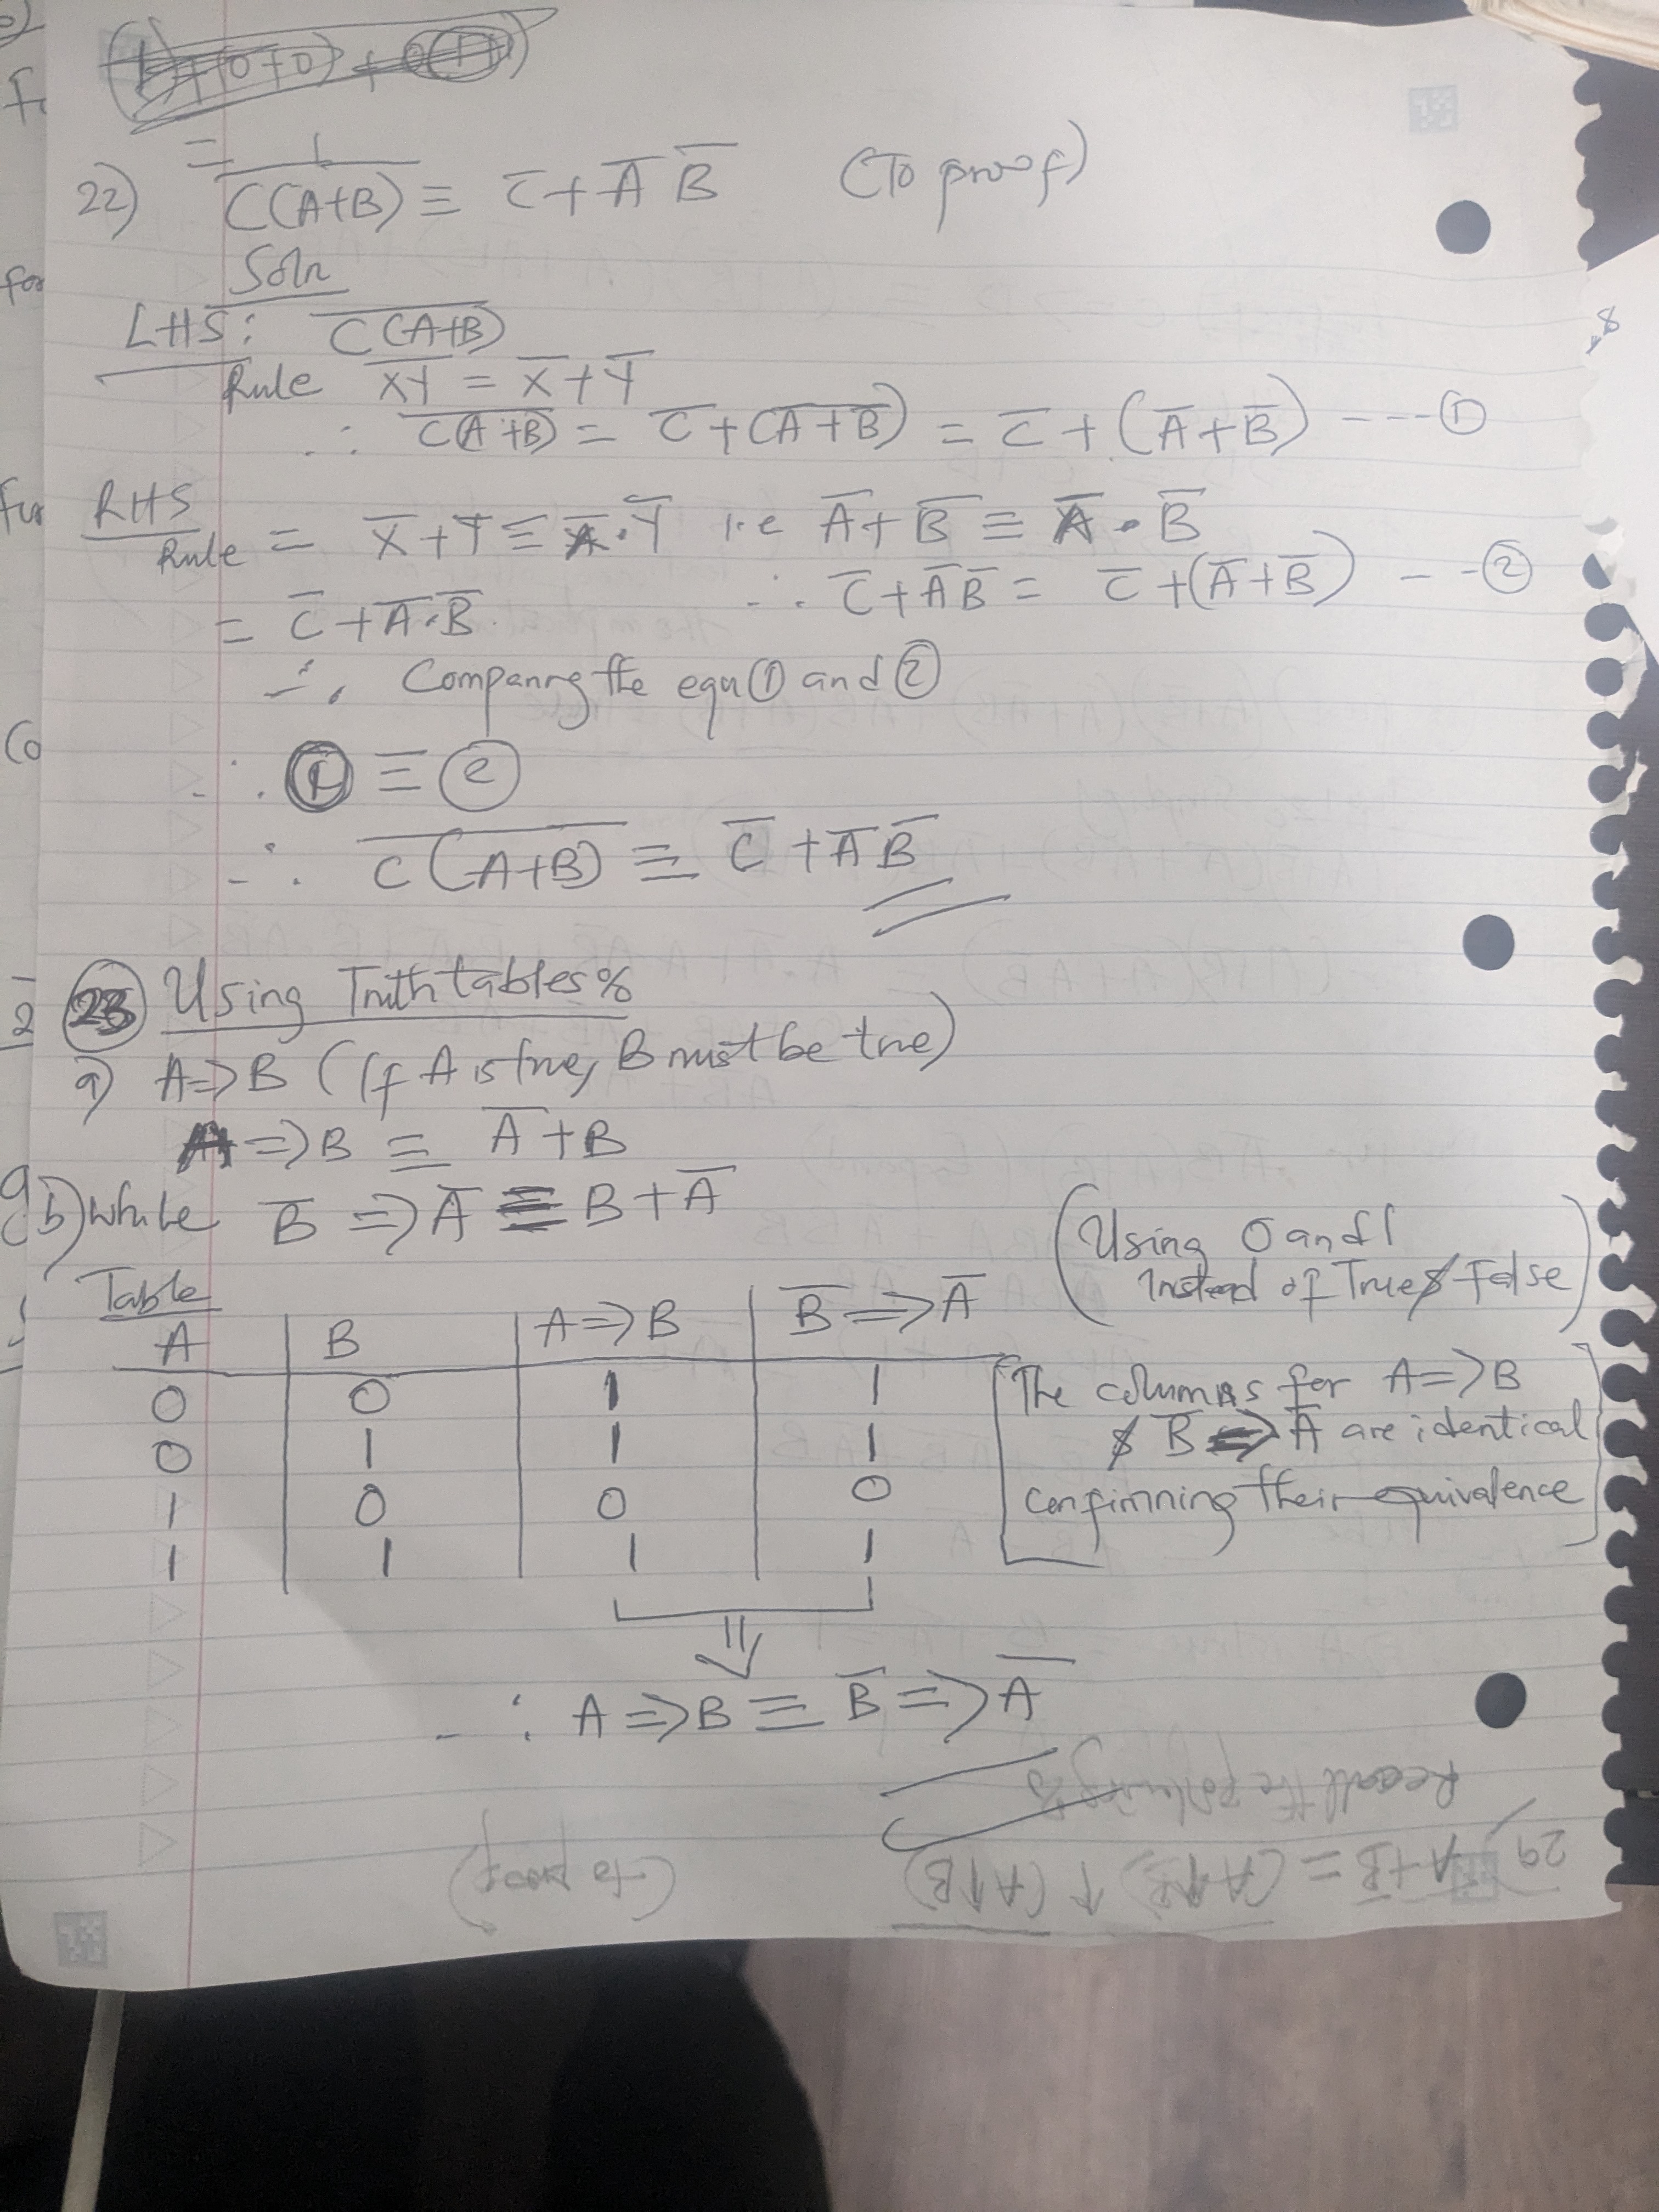 = 1
22) \overline{C(A+B)} ≡ C̅ + A̅ B̅ (To proof)
Soln
LHS: \overline{C(A+B)}
Rule \overline{XY} = X̅ + Y̅
∴ \overline{C(A+B)} = C̅ + (\overline{A+B}) = C̅ + (A̅ + B̅) ---①
RHS
Rule = X̅ + Y̅ ≡ X̅ . Y̅ i.e A̅ + B̅ ≡ A̅ . B̅
= C̅ + A̅ . B̅. ∴ C̅ + A̅ B̅ = C̅ + (A̅ + B̅) --②
∴ Comparing the equ ① and ②
∴ ① ≡ ②
∴ \overline{C(A+B)} ≡ C̅ + A̅ B̅
23 Using Truth tables%
a) A=>B (If A is true, B must be true)
A=>B ≡ A̅ + B
b) while B̅ => A̅ ≡ B + A̅
(Using 0 and 1
Instead of True & False)
Table
A B A=>B B̅ => A̅
0 0 1 1
0 1 1 1
1 0 0 0
1 1 1 1
[The columns for A=>B
& B̅ => A̅ are identical
confirmning their equivalence]
∴ A=>B ≡ B̅ => A̅
29 A̅ + B̅ = (A↑B) ↑ (A↑B) (to proof)
Recall the following